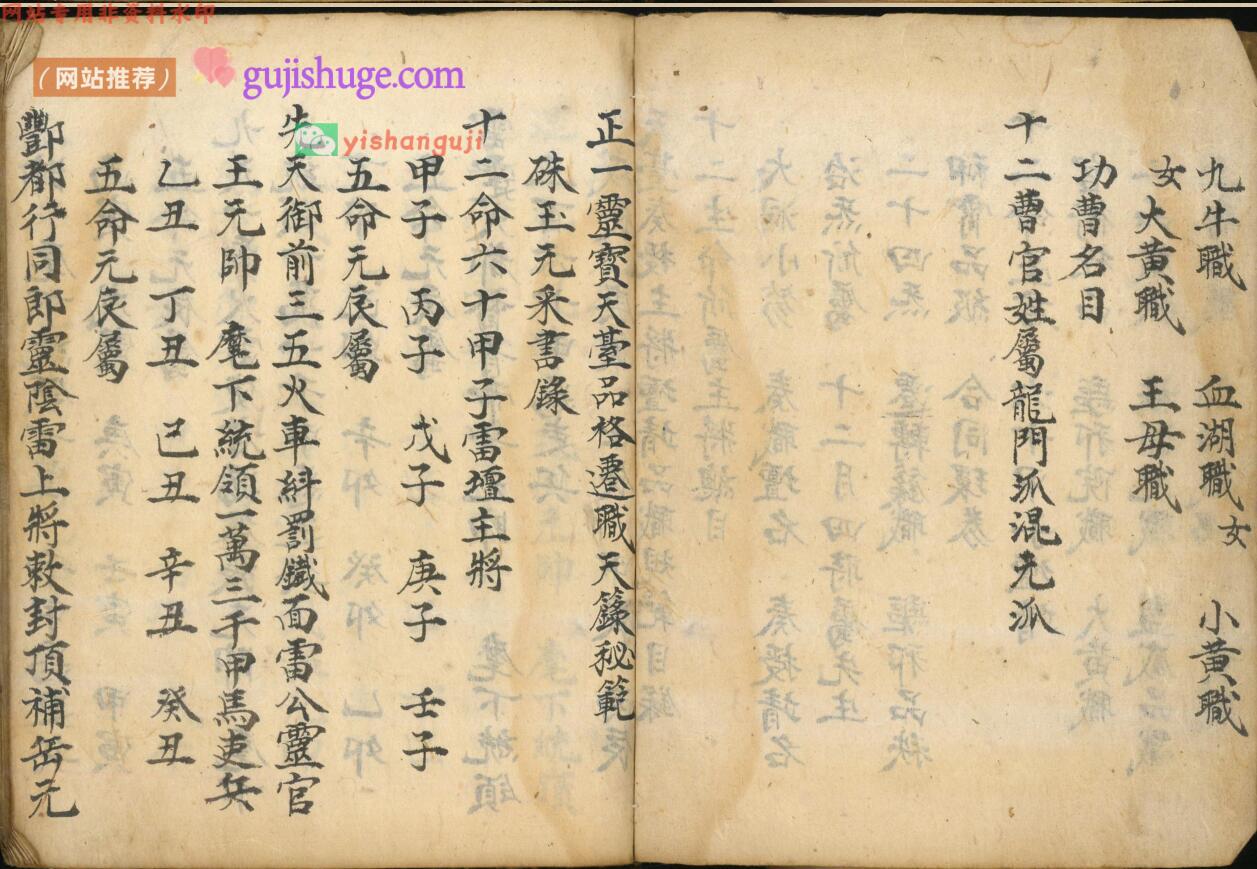 网站专用非资料水印
（网站推荐）
gujishuge.com
yishanguji
九牛職 血湖職 女 小黃職
女 大黃職 王母職
功曹名目
十二曹官姓屬龍門派混元派
正一靈寶天臺品格遷職天籙秘範
硃玉元采書錄
十二命六十甲子雷壇主將
甲子 丙子 戊子 庚子 壬子
五命元辰屬
先天御前三五火車糾罰鐵面雷公靈官
王元帥 麾下統領一萬三千甲馬吏兵
乙丑 丁丑 己丑 辛丑 癸丑
五命元辰屬
酆都行同郎靈陰雷上將敕封頂補岳元